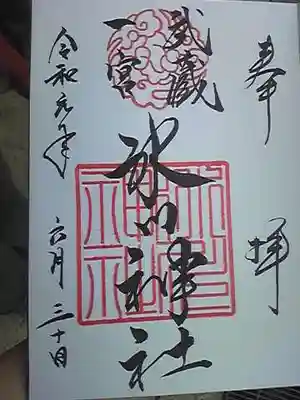 奉拝
武蔵
一宮
氷川神社
令和元年
六月三十日